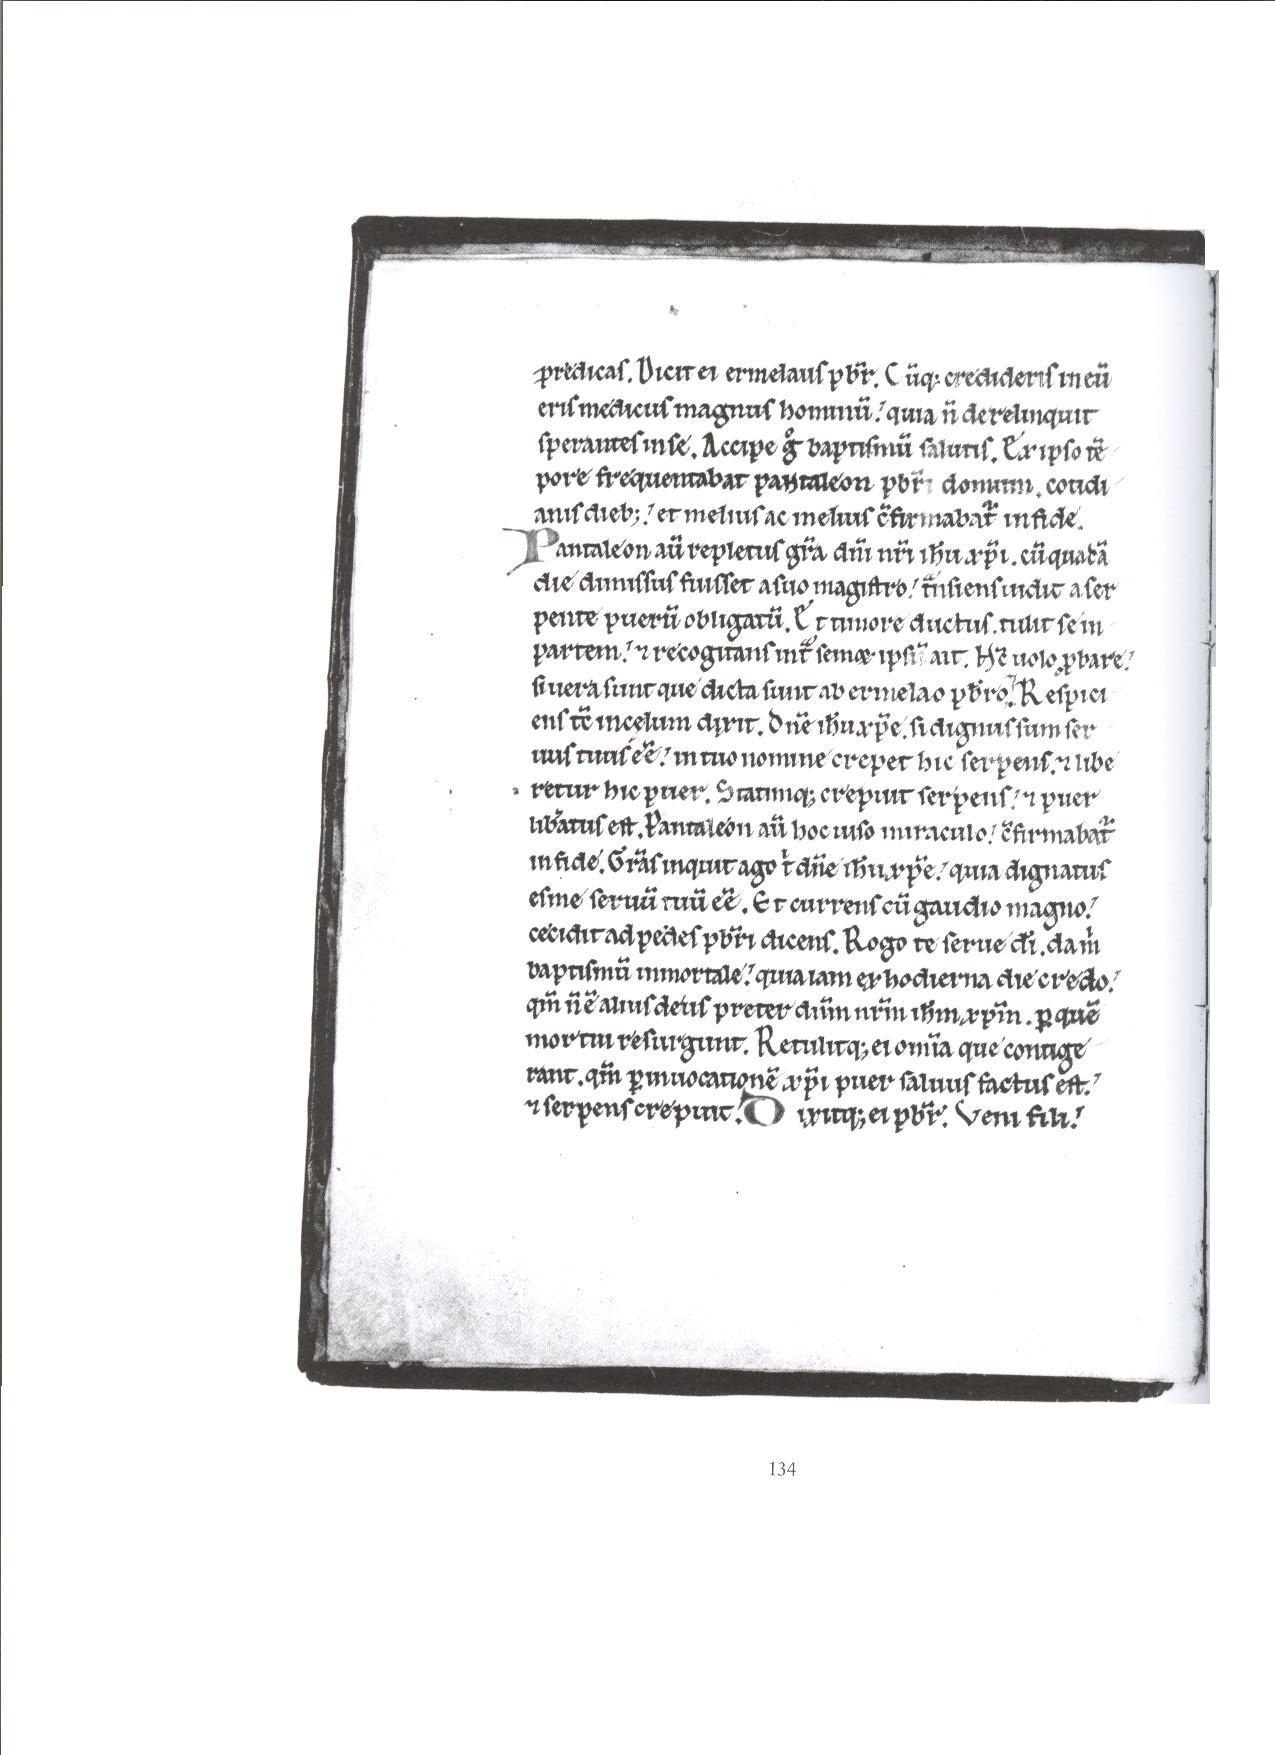 predicas. Dicit ei ermelaus pb̄r. Cūq; credideris in eū
eris medicus magnus hominū! quia n̄ derelinquit
sperantes in se. Accipe gͦ baptismū salutis. Ex ipso tē
pore frequentabat pantaleon pb̄ri domum. cotidi
anis dieb;! et melius ac melius c̄firmabat᷑ in fide.
Pantaleon aū repletus gr̄a dn̄i nr̄i ih̄u xp̄i. cū quadā
die dimissus fuisset a suo magistro! t̄nsiens uidit a ser
pente puerū obligatū. Et timore ductus. tulit se in
partem! ⁊ recogitans int᷑ semæ ipsū ait. Hc̄ uolo ꝓbare!
si uera sunt que dicta sunt ab ermelao pb̄ro! Respici
ens tc̄ in celum dixit. Dn̄e ih̄u xp̄e. si dignus sum ser
uus tuus ēē! in tuo nomine crepet hic serpens. ⁊ libe
retur hic puer. Statimq; crepuit serpens! ⁊ puer
lib̄atus est. Pantaleon aū hoc uiso miraculo! c̄firmabat᷑
in fide. Gr̄as inquit ago tⁱ dn̄e ih̄u xp̄e! quia dignatus
es me seruū tuū ēē. Et currens cū gaudio magno!
cecidit ad pedes pb̄ri dicens. Rogo te serue dī. da mⁱ
baptismū inmortale! quia iam ex hodierna die credo!
qm̄ n̄ ē alius deus preter dn̄m nr̄m ih̄m xp̄m. ꝑ quē
mortui resurgunt. Retulitq; ei om̄ia que contige
rant. qm̄ ꝑ inuocationē xp̄i puer saluus factus est!
⁊ serpens crepuit! Dixitq; ei pb̄r. Veni fili!
134